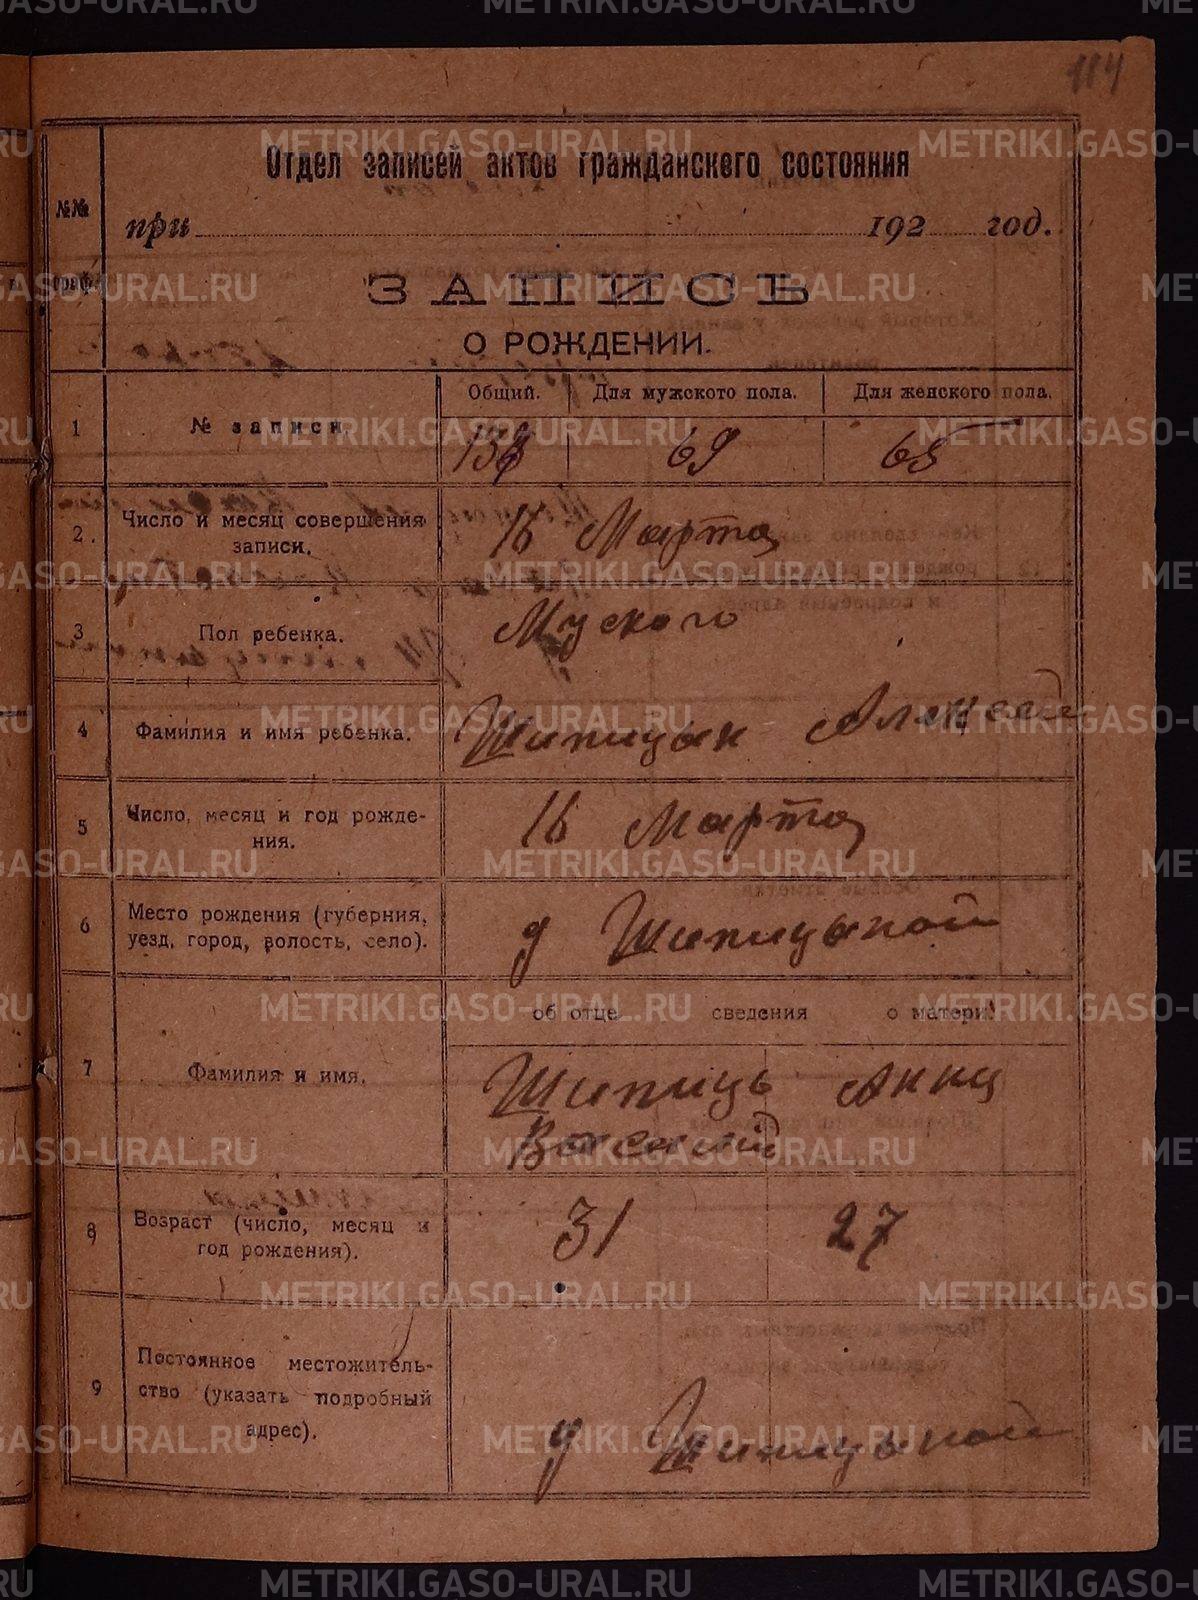 114
Отдел записей актов гражданского состояния
№№ граф.
при 192 год.
ЗАПИСЬ
О РОЖДЕНИИ.
1 № записи. Общий. Для мужского пола. Для женского пола.
69 65
2. Число и месяц совершения
записи.
16 Марта
3 Пол ребенка. Муского
4 Фамилия и имя ребенка. Шипицын Алексей
5 Число, месяц и год рожде-
ния.
16 Марта
6 Место рождения (губерния,
уезд, город, волость, село).
д Шипицыной
об отце сведения о матери.
7 Фамилия и имя. Шипицъ Анна
8 Возраст (число, месяц и
год рождения).
31 27
9 Постоянное местожитель-
ство (указать подробный
адрес).
д Шипицыной
METRIKI.GASO-URAL.RU